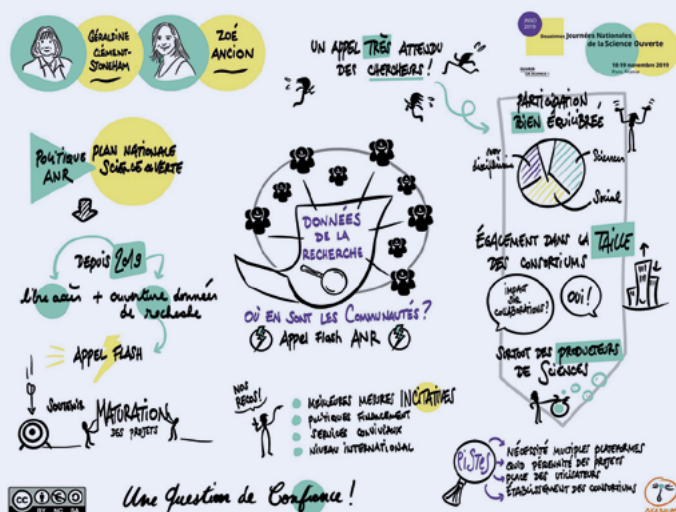 GÉRALDINE
CLÉMENT-
STONEHAM
ZOÉ
ANCION
UN APPEL TRÈS ATTENDU
DES CHERCHEURS !
JNSO
2019
Douzièmes Journées Nationales
de la Science Ouverte
18-19 novembre 2019
Paris, France
POLITIQUE
ANR
PLAN NATIONALE
SCIENCE OUVERTE
DEPUIS 2019
libre accès + ouverture données
de recherche
APPEL FLASH
SOUTENIR
MATURATION
DES PROJETS
DONNÉES
DE LA
RECHERCHE
OÙ EN SONT LES COMMUNAUTÉS ?
Appel Flash ANR
NOS
RECOS !
MEILLEURES MESURES INCITATIVES
POLITIQUES FINANCEMENT
SERVICES CONVIVIAUX
NIVEAU INTERNATIONAL
PARTICIPATION
BIEN ÉQUILIBRÉE
Sciences
Social
ÉGALEMENT DANS LA TAILLE
DES CONSORTIUMS
IMPACT
SUR
COLLABORATIONS ?
OUI !
SURTOUT DES PRODUCTEURS
DE SCIENCES
PISTES
NÉCESSITÉ MULTIPLES PLATEFORMES
QUID PÉRENNITÉ DES PROJETS
PLACE DES UTILISATEURS
ÉTABLISSEMENT DES CONSORTIUMS
Une Question de Confiance !
CC
BY NC SA